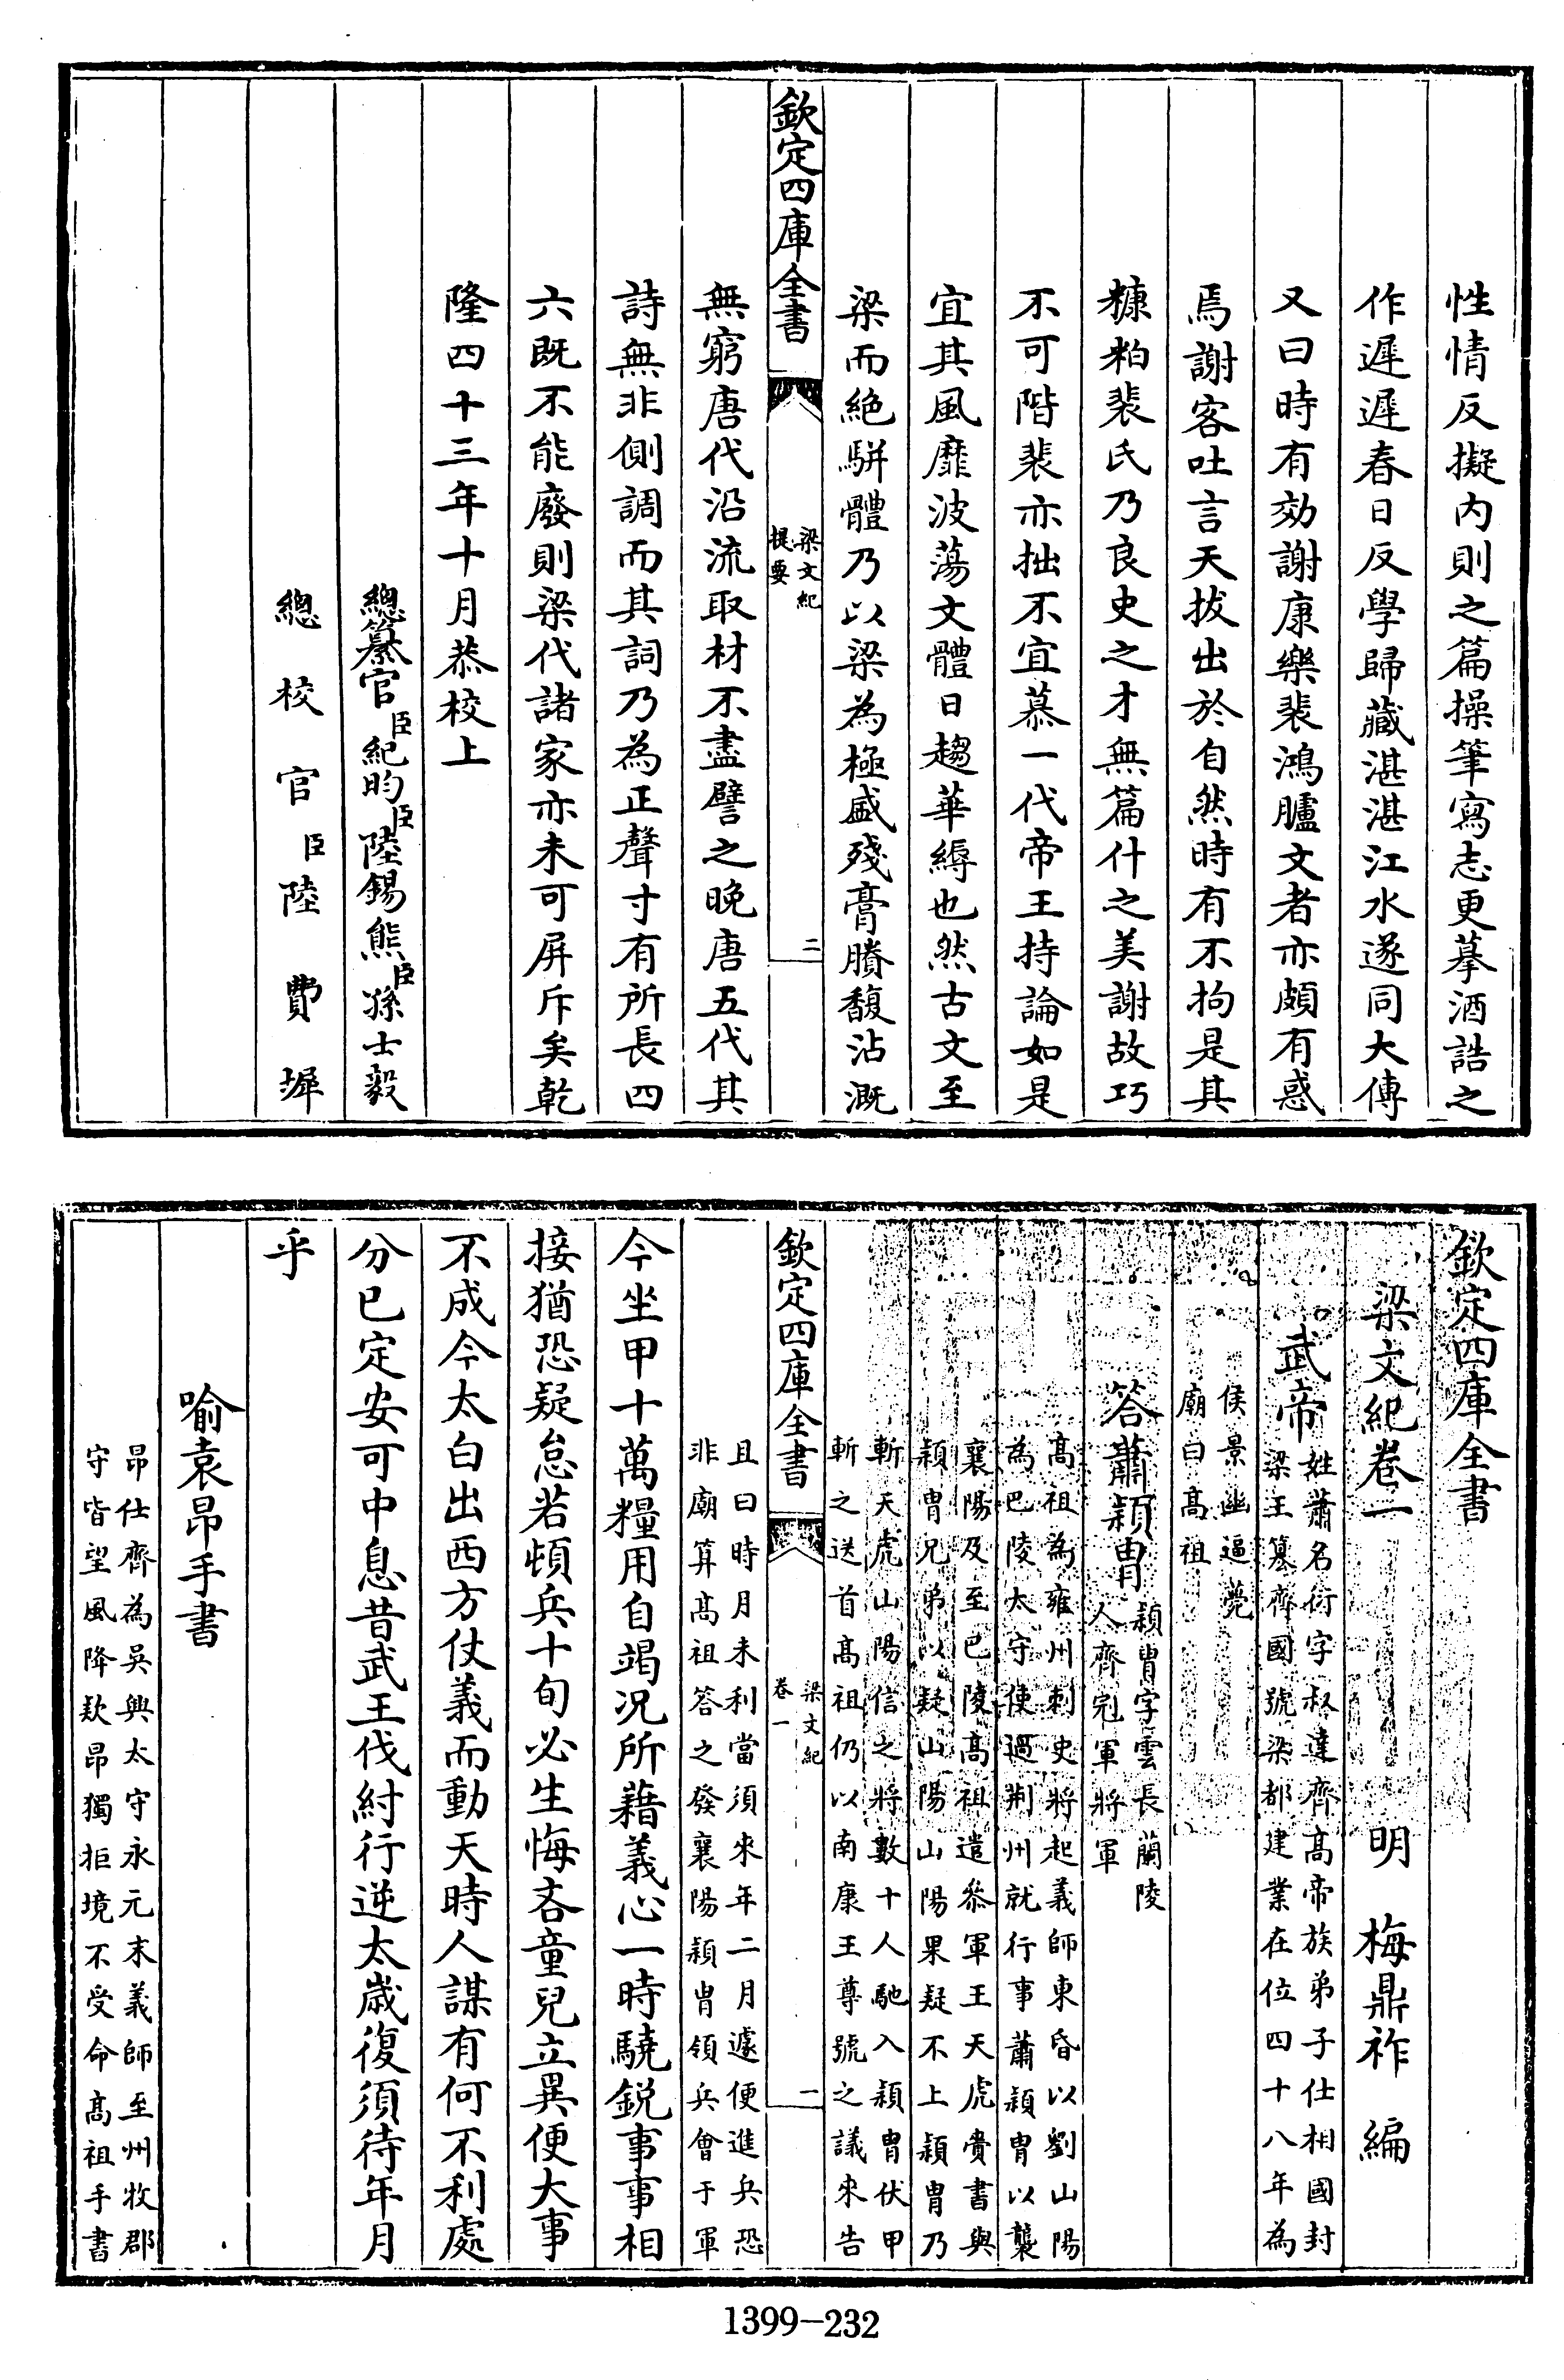 性情反擬内則之篇操筆寫志更摹酒誥之
作遲遲春日反學歸藏湛湛江水遂同大傳
又曰時有効謝康樂裴鴻臚文者亦頗有惑
焉謝客吐言天拔出於自然時有不拘是其
糠粕裴氏乃良史之才無篇什之美謝故巧
不可階裴亦拙不宜慕一代帝王持論如是
宜其風靡波蕩文體日趨華縟也然古文至
梁而絶駢體乃以梁為極盛殘膏賸馥沾溉
欽定四庫全書
梁文紀
提要
二
無窮唐代沿流取材不盡譬之晚唐五代其
詩無非側調而其詞乃為正聲寸有所長四
六既不能廢則梁代諸家亦未可屏斥矣乾
隆四十三年十月恭校上
總纂官臣紀昀臣陸錫熊臣孫士毅
總校官臣陸費墀
欽定四庫全書
梁文紀卷一
明 梅鼎祚 編
武帝
姓蕭名衍字叔達齊高帝族弟子仕相國封
梁王簒齊國號梁都建業在位四十八年為
侯景幽逼薨
廟曰高祖
答蕭穎胄
穎胄字雲長蘭陵
人齊冠軍將軍
高祖為雍州刺史將起義師東昏以劉山陽
為巴陵太守使過荆州就行事蕭穎胄以襲
襄陽及至巴陵高祖遣參軍王天虎賫書與
穎胄兄弟以疑山陽山陽果疑不上穎胄乃
斬天虎山陽信之將數十人馳入穎胄伏甲
斬之送首高祖仍以南康王尊號之議來告
欽定四庫全書
梁文紀
卷一
一
且曰時月未利當須來年二月遽便進兵恐
非廟算高祖答之發襄陽穎胄領兵會于軍
今坐甲十萬糧用自竭况所藉義心一時驍鋭事事相
接猶恐疑怠若頓兵十旬必生悔吝童兒立異便大事
不成今太白出西方仗義而動天時人謀有何不利處
分已定安可中息昔武王伐紂行逆太歲復須待年月
乎
喻袁昂手書
昂仕齊為吳興太守永元末義師至州牧郡
守皆望風降欵昂獨拒境不受命高祖手書
1399-232